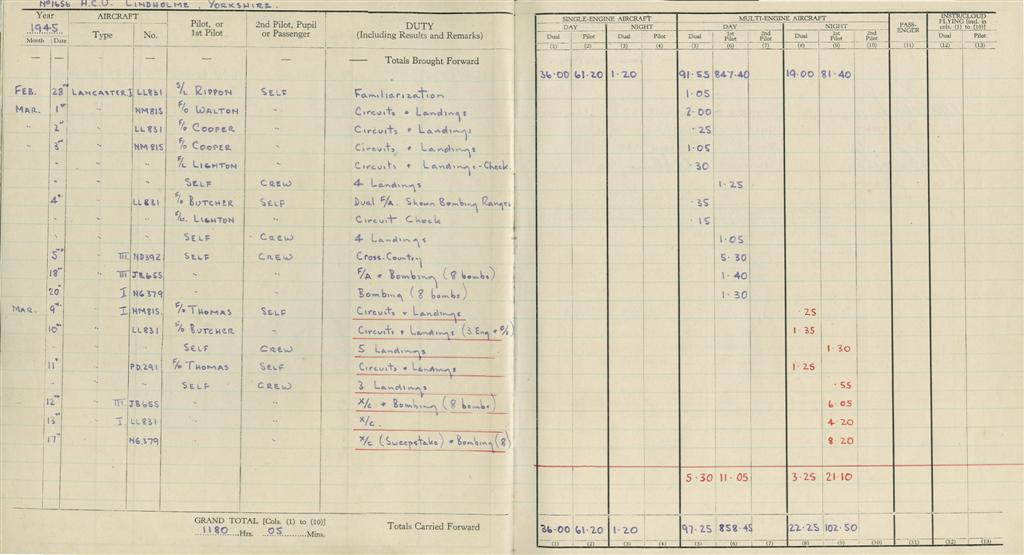 No 1656 H.C.U. LINDHOLME, YORKSHIRE.
Year AIRCRAFT Pilot, or 1st Pilot 2nd Pilot, Pupil or Passenger DUTY (Including Results and Remarks) SINGLE-ENGINE AIRCRAFT MULTI-ENGINE AIRCRAFT PASS-ENGER INSTR/CLOUD FLYING [Incl. in cols. (1) to (10)]
1945 DAY NIGHT DAY NIGHT
Month Date Type No. Dual Pilot Dual Pilot Dual 1st Pilot 2nd Pilot Dual 1st Pilot 2nd Pilot Dual Pilot
(1) (2) (3) (4) (5) (6) (7) (8) (9) (10) (11) (12) (13)
— — — — — — — Totals Brought Forward 36.00 61.20 1.20 91.55 847.40 19.00 81.40
FEB. 28TH LANCASTER I LL831 S/L RIPPON SELF Familiarization 1.05
MAR. 1ST " NM815 F/O WALTON " Circuits + Landings 2.00
" 2ND " LL831 F/O COOPER " Circuits + Landings .25
" 3RD " NM815 F/O COOPER " Circuits + Landings 1.05
" " F/L LIGHTON " Circuits + Landings-Check. .30
" " SELF CREW 4 Landings 1.25
4TH " LL831 F/O BUTCHER SELF Dual F/A. Shown Bombing Ranges .35
" " F/L. LIGHTON " Circuit Check .15
" " SELF CREW 4 Landings 1.05
5TH " III. ND392 SELF CREW Cross.Country 5.30
18TH " III JB655 " " F/A + Bombing (8 bombs) 1.40
20TH I NG379 " " Bombing (8 bombs) 1.30
MAR. 9TH " I NM815. F/O THOMAS SELF Circuits + Landings .25
10TH " LL831 F/O BUTCHER " Circuits + Landings (3 Eng + F/S) 1.35
" " SELF CREW 5 Landings 1.30
11TH " PD.291 F/O THOMAS SELF Circuits + Landings 1.25
" " SELF CREW 3 Landings .55
12TH " III. JB655 " " X/C + Bombing (8 bombs) 6.05
13TH " I LL831 " " X/C. 4.20
17TH NG379 " " X/C (Sweepstake) + Bombing (8) 8.20
5.30 11.05 3.25 21.10
GRAND TOTAL [Cols. (1) to (10)] Totals Carried Forward
1180 Hrs. 05 Mins. 36.00 61.20 1.20 97.25 858.45 22.25 102.50
(1) (2) (3) (4) (5) (6) (7) (8) (9) (10) (11) (12) (13)